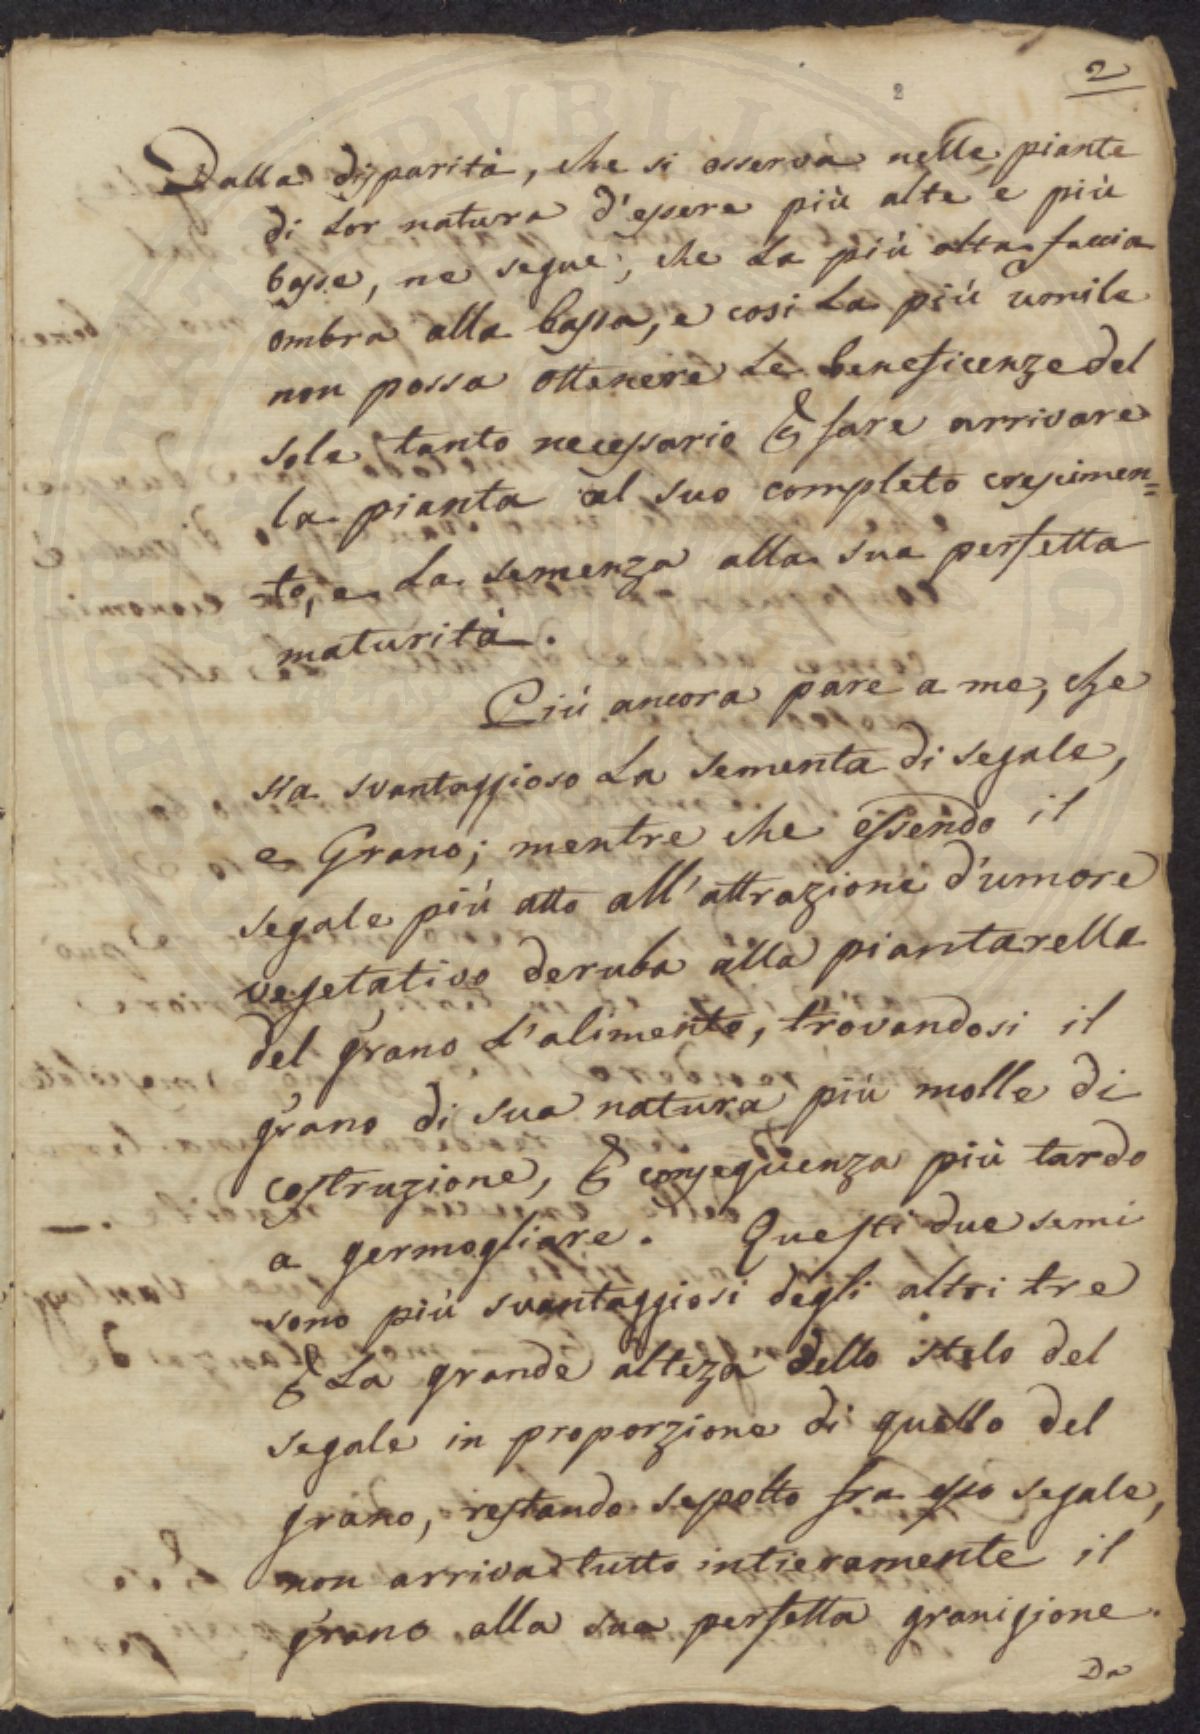 2
2
Dalla disparità, che si osserva nelle piante
di lor natura d'essere più alte e più
basse, ne segue, che la più alta faccia
ombra alla bassa, e cosi la più umile
non possa ottenere le beneficenze del
sole tanto necessario & fare arrivare
la pianta al suo completo crescimen=
to, e la semenza alla sua perfetta
maturità.
Più ancora pare a me, che
sia svantaggioso la sementa di segale,
e Grano; mentre che essendo il
segale più atto all'attrazione d'umore
vegetativo deruba alla piantarella
del grano l'alimento, trovandosi il
grano di sua natura più molle di
costruzione, & consequenza più tardo
a germogliare. Questi due semi
sono più svantaggiosi degli altri tre
& la grande alteza dello stelo del
segale in proporzione di quello del
grano, restando sepolto fra esso segale,
non arriva tutto intieramente il
grano alla sua perfetta granigione.
Da